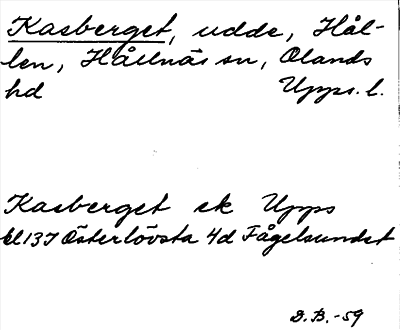 Kasberget, udde, Hål-
len, Hållnäs sn, Olands
hd Upps. l.
Kasberget ek Upps
bl 137 Österlövsta 4d Fågelsundet
D.B.-59